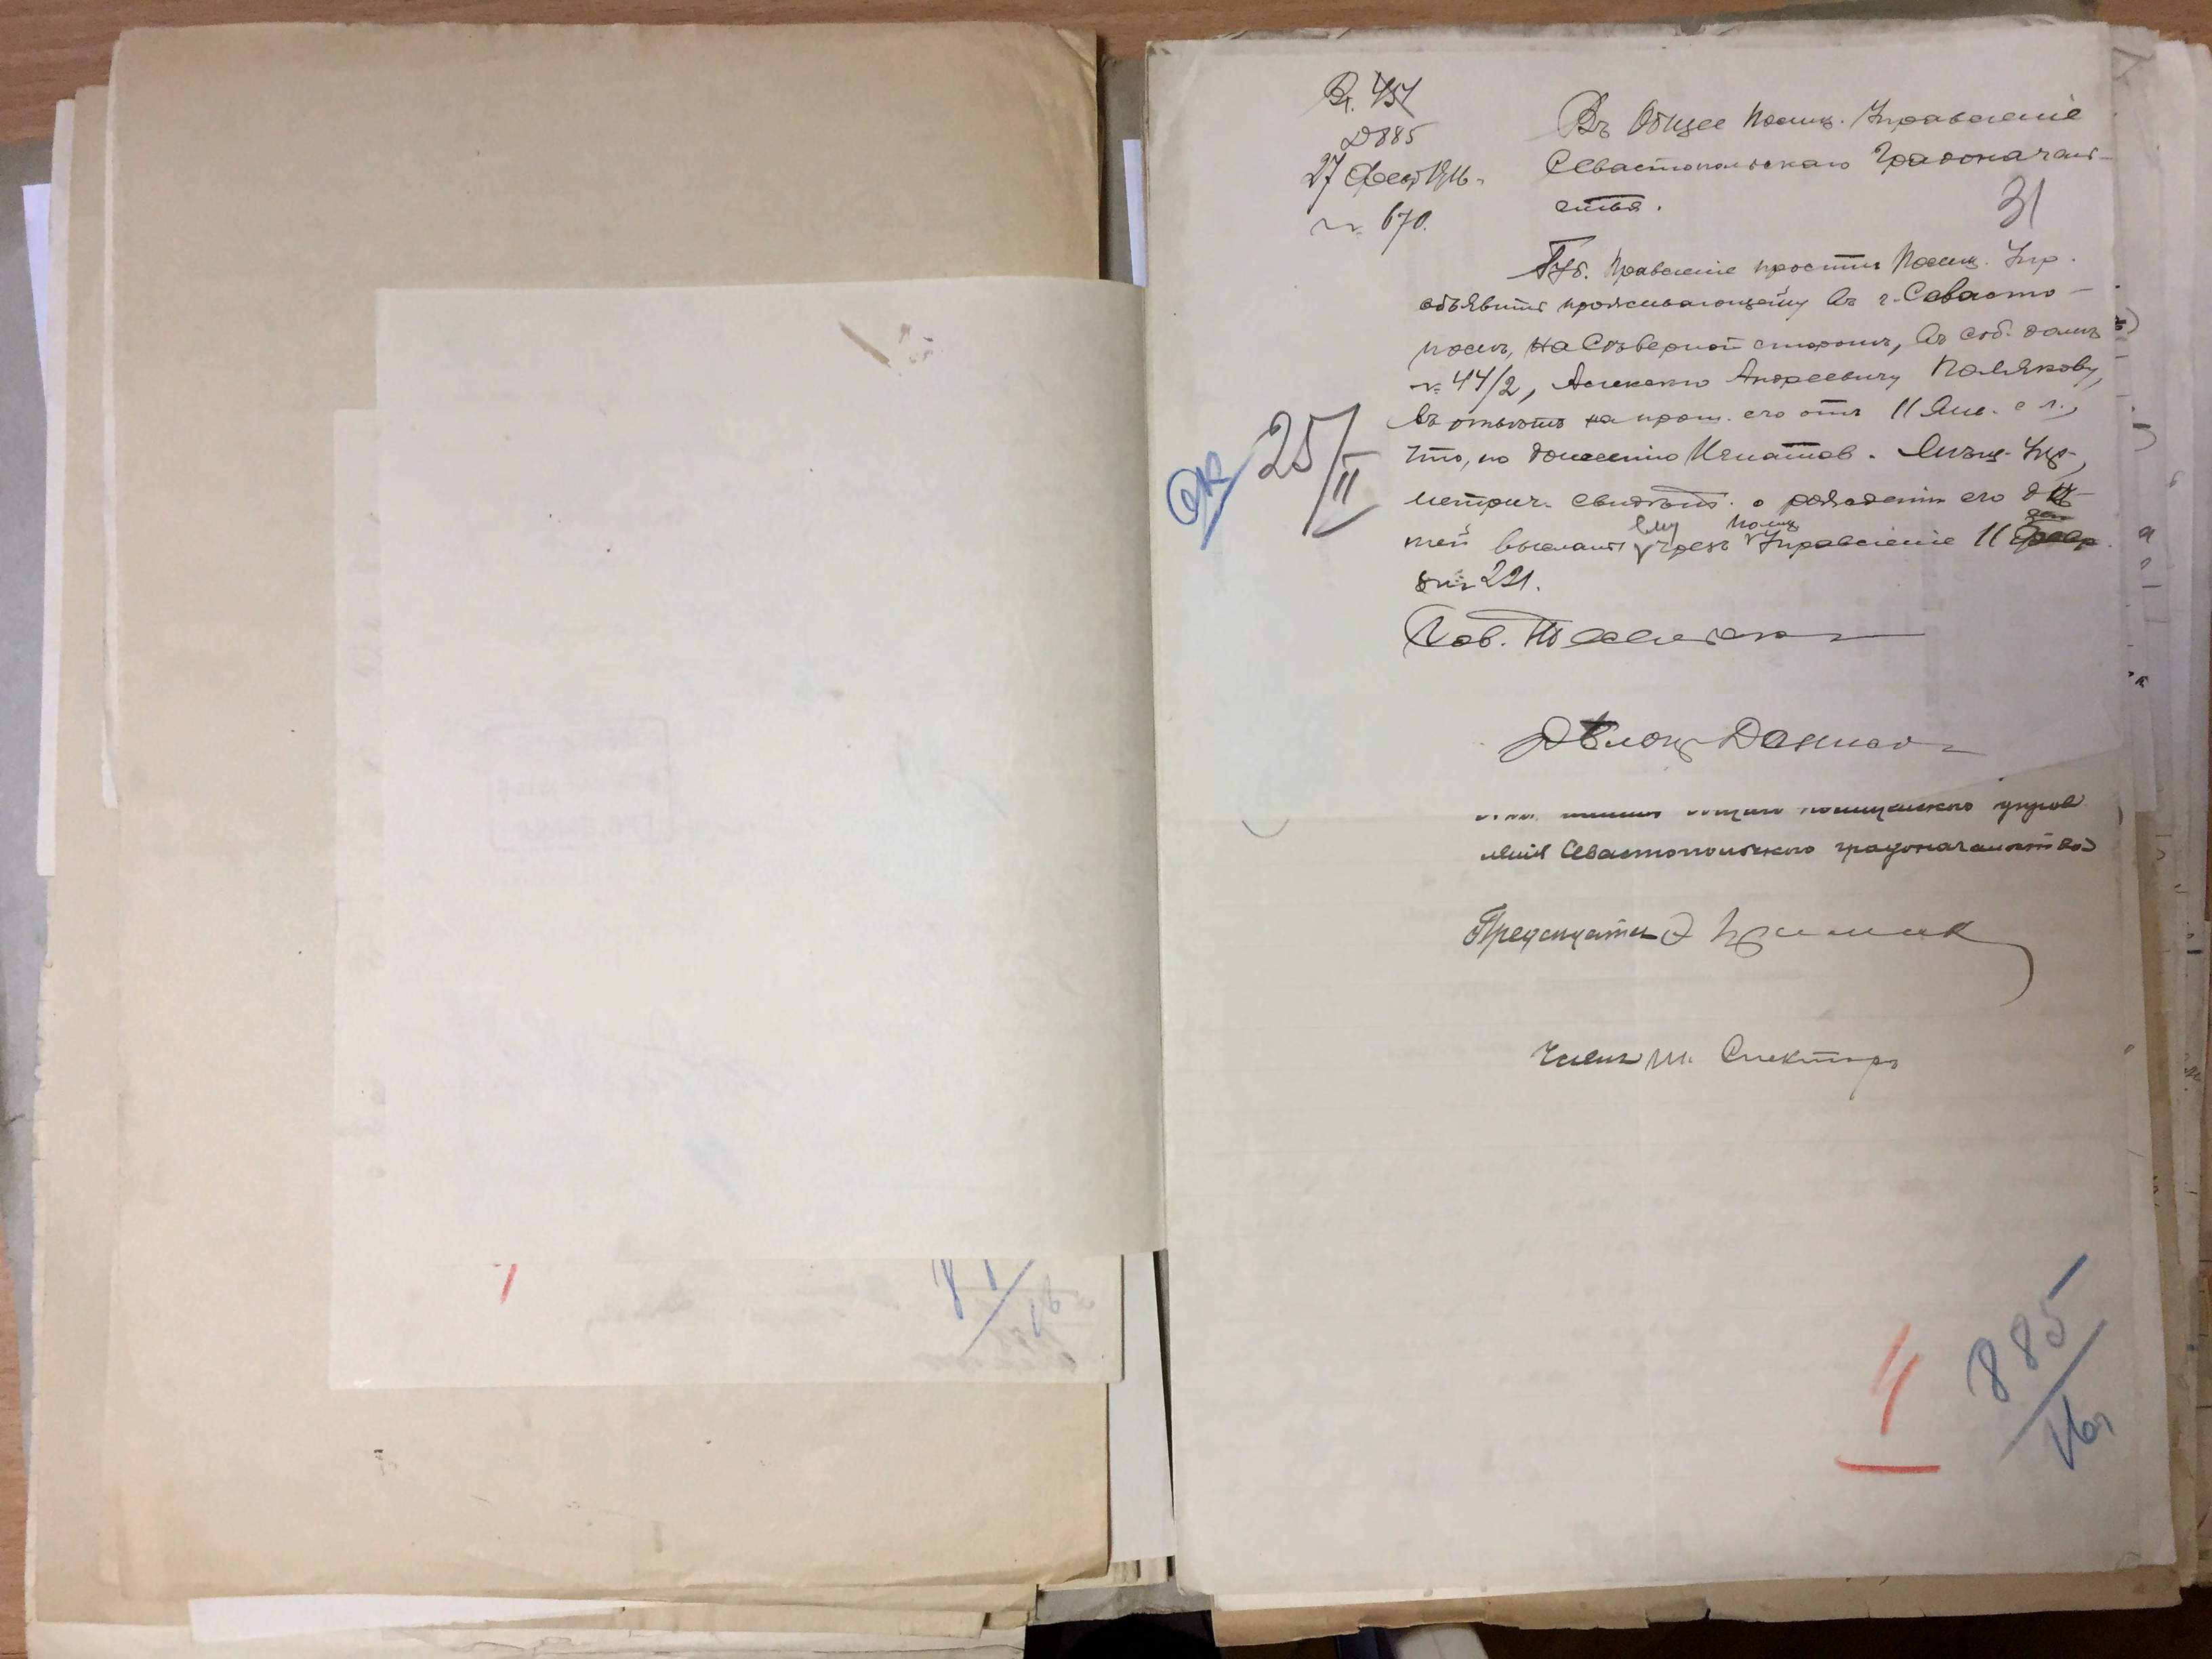 Вт. 457
Д 885
27 Февр 1916
№ 670.
Въ Общее Полиц. Управленіе
Севастопольскаго Градоначаль-
ства.
31
Губ. Правленіе проситъ Полиц. Упр.
объявить проживающему въ г. Севасто-
полѣ, на Сѣверной сторонѣ, въ соб. домѣ
№ 44/2, Алексѣю Андреевичу Полякову,
въ отвѣтъ на прош. его отъ 11 Янв. с. г.,
что, по донесенію Игнатов. Мѣщ. Упр.,
метрич. свидѣт. о рожденіи его дѣ-
тей высланы ему чрезъ полиц. Управленіе 11
за № 221.
25/II
Сов.
Дѣлопр.
полицейскаго управ
ленія Севастопольскаго градоначальства
Предсѣдатель
Членъ М. Спекторъ
4
885
16 г.